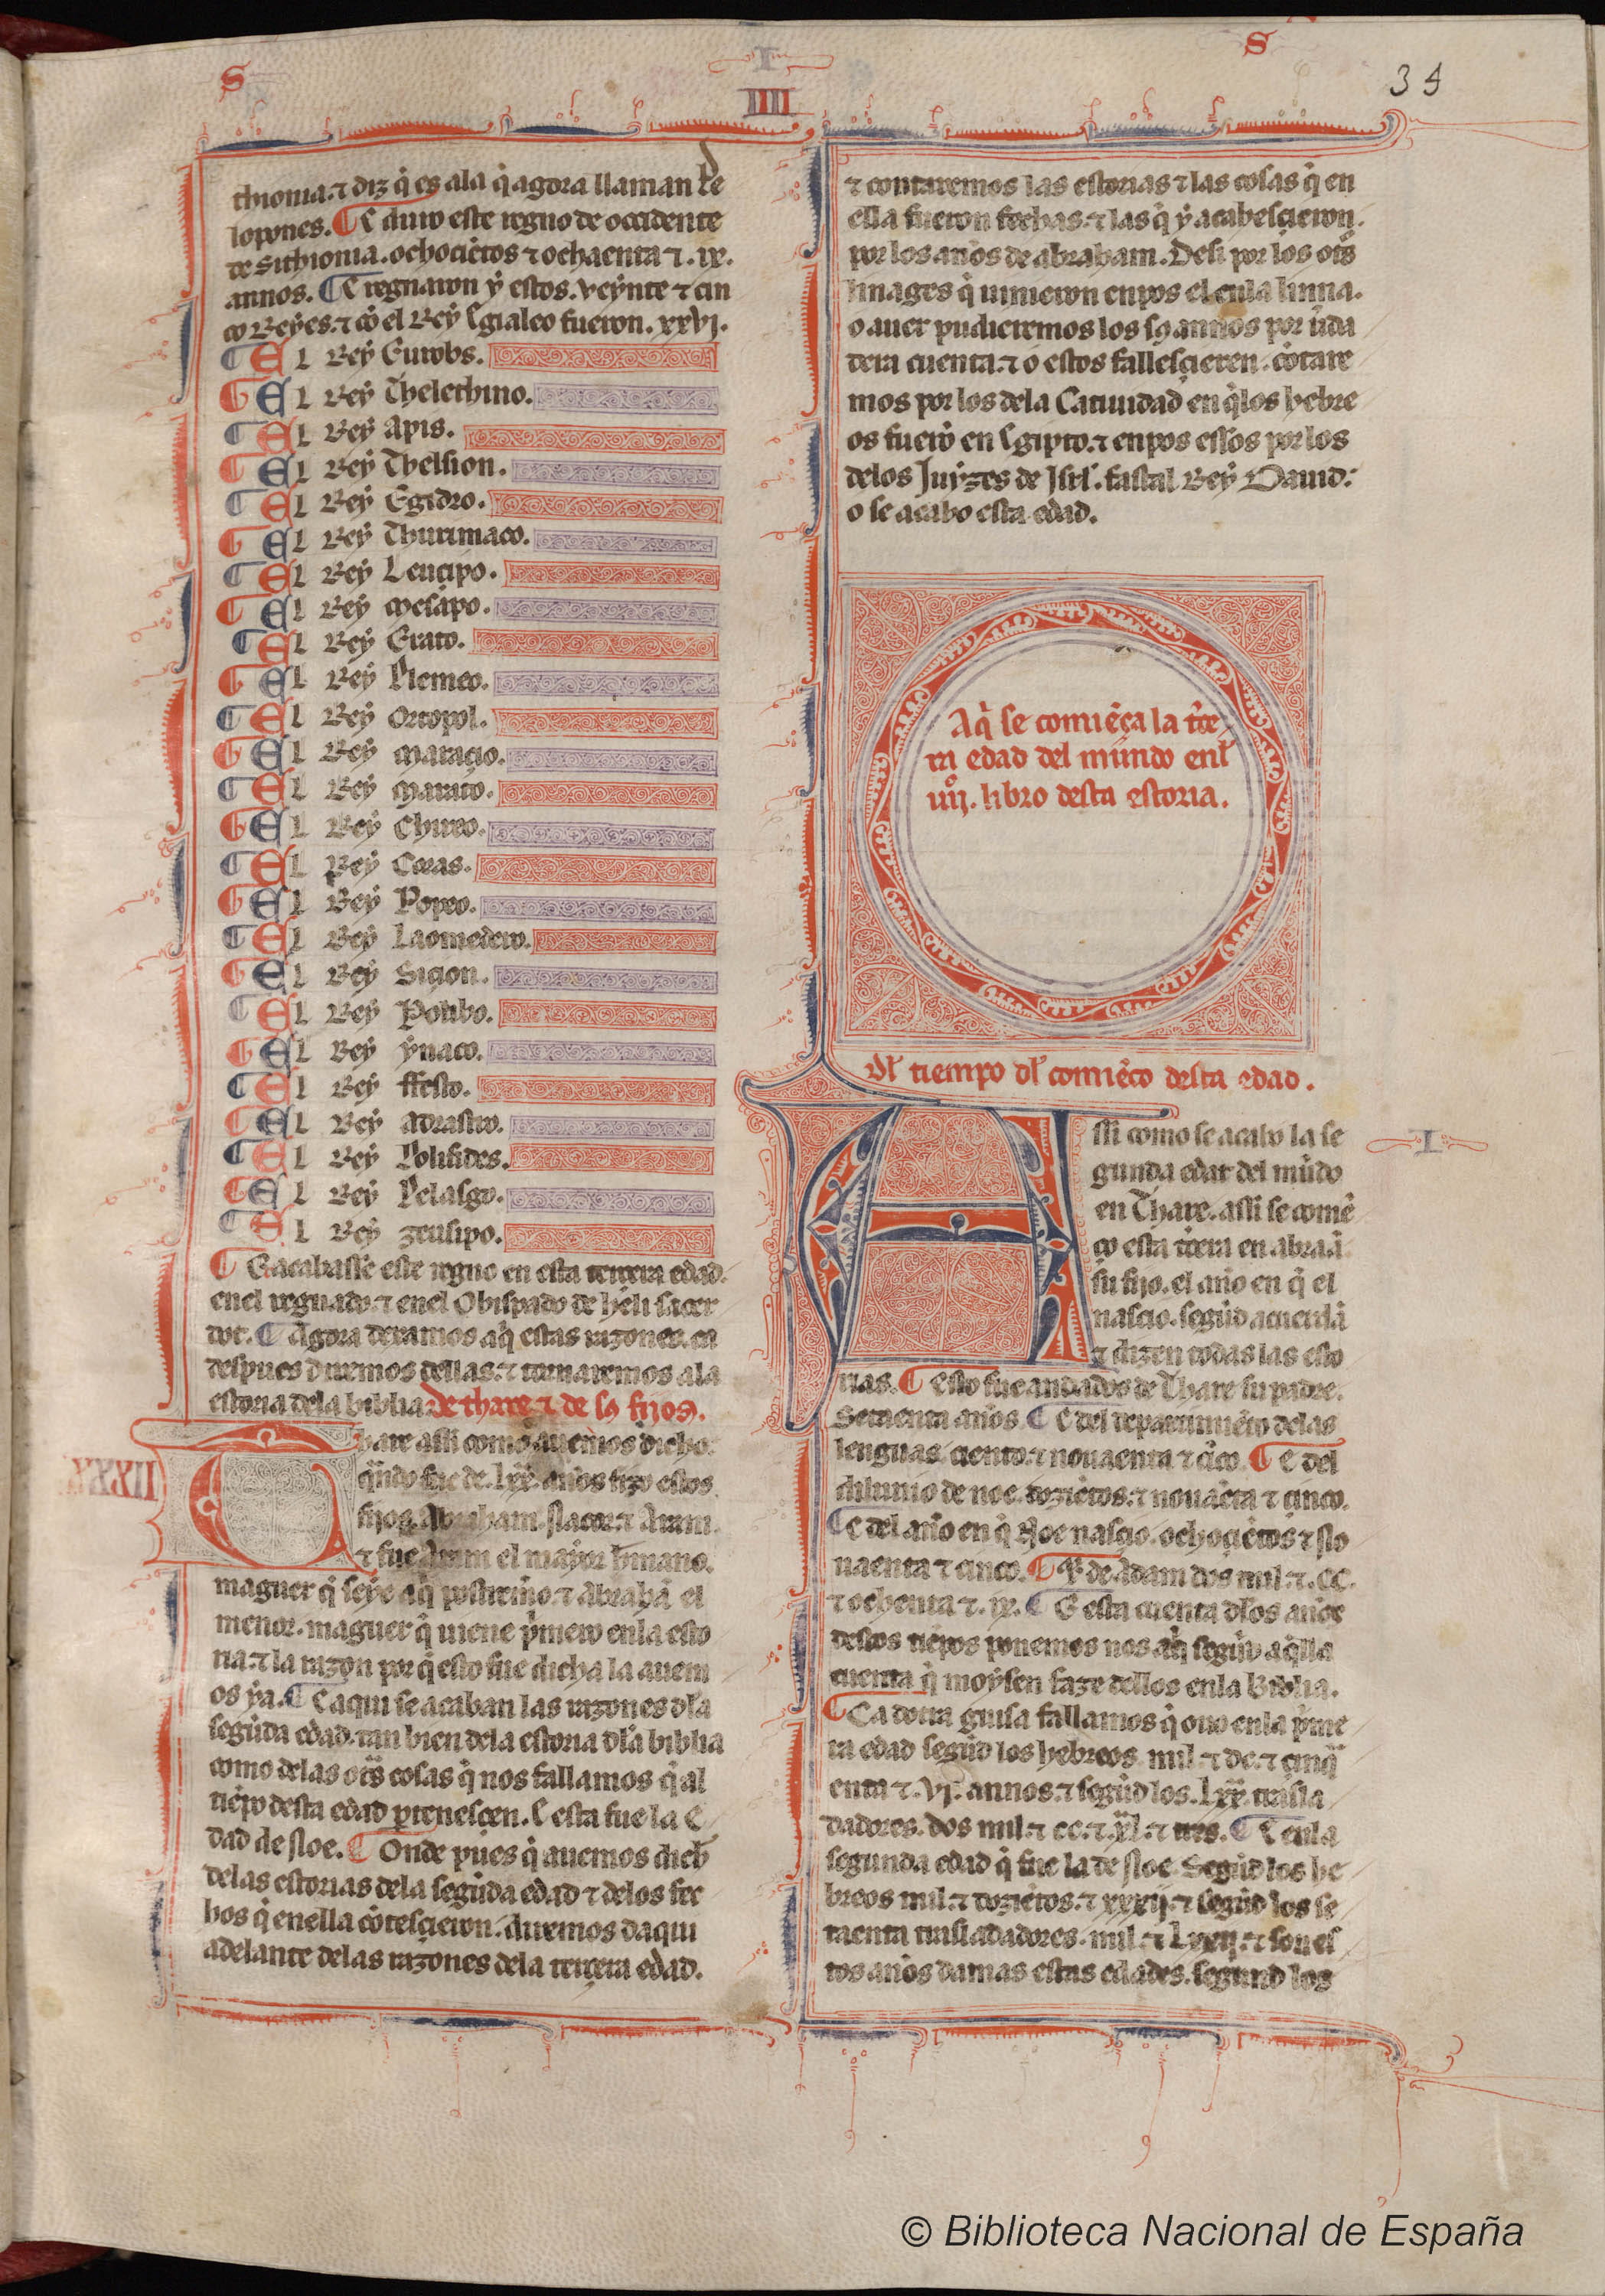 S
I
S
IIII
34
thionia. ⁊ diz q̃ es ala q̃ agora llaman Pe
lopones. ¶ E duro este regno de occidente
de Sithionia. ochociẽtos ⁊ ochaenta ⁊ .ix.
annos. ¶ E regnaron ẏ estos. veẏnte ⁊ cin
co Reẏes. ⁊ cõ el Reẏ Egialeo fueron. xxvj.
¶ El Reẏ Eurobs.
¶ El Reẏ Thelechino.
¶ El Reẏ Apis.
¶ El Reẏ Thelsion.
¶ El Reẏ Egidro.
¶ El Reẏ Thurimaco.
¶ El Reẏ Leucipo.
¶ El Reẏ Mesapo.
¶ El Reẏ Erato.
¶ El Reẏ Plemeo.
¶ El Reẏ Ortopol.
¶ El Reẏ Maracio.
¶ El Reẏ Marato.
¶ El Reẏ Chireo.
¶ El Reẏ Coras.
¶ El Reẏ Popeo.
¶ El Reẏ Laomedero.
¶ El Reẏ Sicion.
¶ El Reẏ Polibo.
¶ El Reẏ ẏnaco.
¶ El Reẏ ffesto.
¶ El Reẏ Adrastro.
¶ El Reẏ Polifides.
¶ El Reẏ Pelasgo.
¶ El Reẏ zeusipo.
¶ E acabasse este regno en esta tercera edad.
enel regnado. ⁊ enel Obispado de heli sacer
dot. ¶ Agora dexamos aq̃ estas razones. ca
despues diremos dellas. ⁊ tornaremos ala
estoria dela biblia. De thare ⁊ de sꝯ fijos.
XXXII
Thare assi como auemos dicho.
q̃ndo fue de. Lxx. años fizo estos
fijos. Abraham. Nacor. ⁊ Aram.
⁊ fue Aram el mayor hmano.
maguer q̃ seẏe aq̃ postremo. ⁊ Abrahã el
menor. maguer q̃ uiene p̃mero enla esto
ria. ⁊ la razon por q̃ esto fue dicha la auem
os ẏa. ¶ E aqui se acaban las razones dla
segũda edad. tan bien dela estoria dla biblia
como delas otr̃s cosas q̃ nos fallamos q̃ al
tiẽpo desta edad ꝑtenescen. E esta fue la e
dad de Noe. ¶ Onde pues q̃ auemos dich̃
delas estorias dela segũda edad ⁊ delos fec
hos q̃ enella cõtescieron. diremos daqui
adelante delas razones dela tercera edad.
⁊ contaremos las estorias ⁊ las cosas q̃ en
ella fueron fechas. ⁊ las q̃ ẏ acahescieron.
por los años de abraham. Desi por los otr̃s
linages q̃ uinieron enpos el enla linna.
o auer pudieremos los sꝯ annos por u̾da
dera cuenta. ⁊ o estos fallescieren. cõtare
mos por los dela Catiuidad en q̃ los hebre
os fuerõ en Egipto. ⁊ enpos essos por los
delos Juẏzes de Isrl̃. fastal Reẏ Dauid.
o se acabo esta edad.
Aq̃ se comiẽça la t̾ce
ra edad del mundo enl
iiijº. libro desta estoria.
Dl̃ tiempo dl̃ comiẽço desta edad.
I
Assi como se acabo la se
gunda edat del mũdo
en Thare. assi se comẽ
ço esta t̾cera en abraã
su fijo. el año en q̃ el
nascio. segũd acuerdã
⁊ dizen todas las esto
rias. ¶ Esto fue andados de Thare su padre.
Setaenta años. ¶ E del departimiẽto delas
lenguas. ciento. ⁊ nouaenta ⁊ cĩco. ¶ E del
diluuio de noe. doziẽtos. ⁊ nouaẽta ⁊ cinco.
¶ E del año en q̃ Noe nascio. ochociẽtos ⁊ No
uaenta ⁊ cinco. ¶ E de Adam dos mil. ⁊. CC.
⁊ ochenta ⁊. ix. ¶ E esta cuenta dlos años
destos tiẽpos ponemos nos aq̃ segũd aq̃lla
cuenta q̃ moẏsen faze dellos enla Biblia.
¶ Ca dotra guisa fallamos q̃ ouo enla p̃me
ra edad segũd los hebreos. mil ⁊ dc. ⁊ cinq̃
enta ⁊. vj. annos. ⁊ segũd los. Lxx. trasla
dadores. dos mil. ⁊ cc. ⁊. xl. ⁊ tres. ¶ E enla
segunda edad q̃ fue la de Noe. Segũd los he
breos mil. ⁊ doziẽtos. ⁊ xxxij. ⁊ segũd los se
taenta trasladadores. mil. ⁊ Lxxij. ⁊ son es
tos años damas estas edades. segund los
© Biblioteca Nacional de España